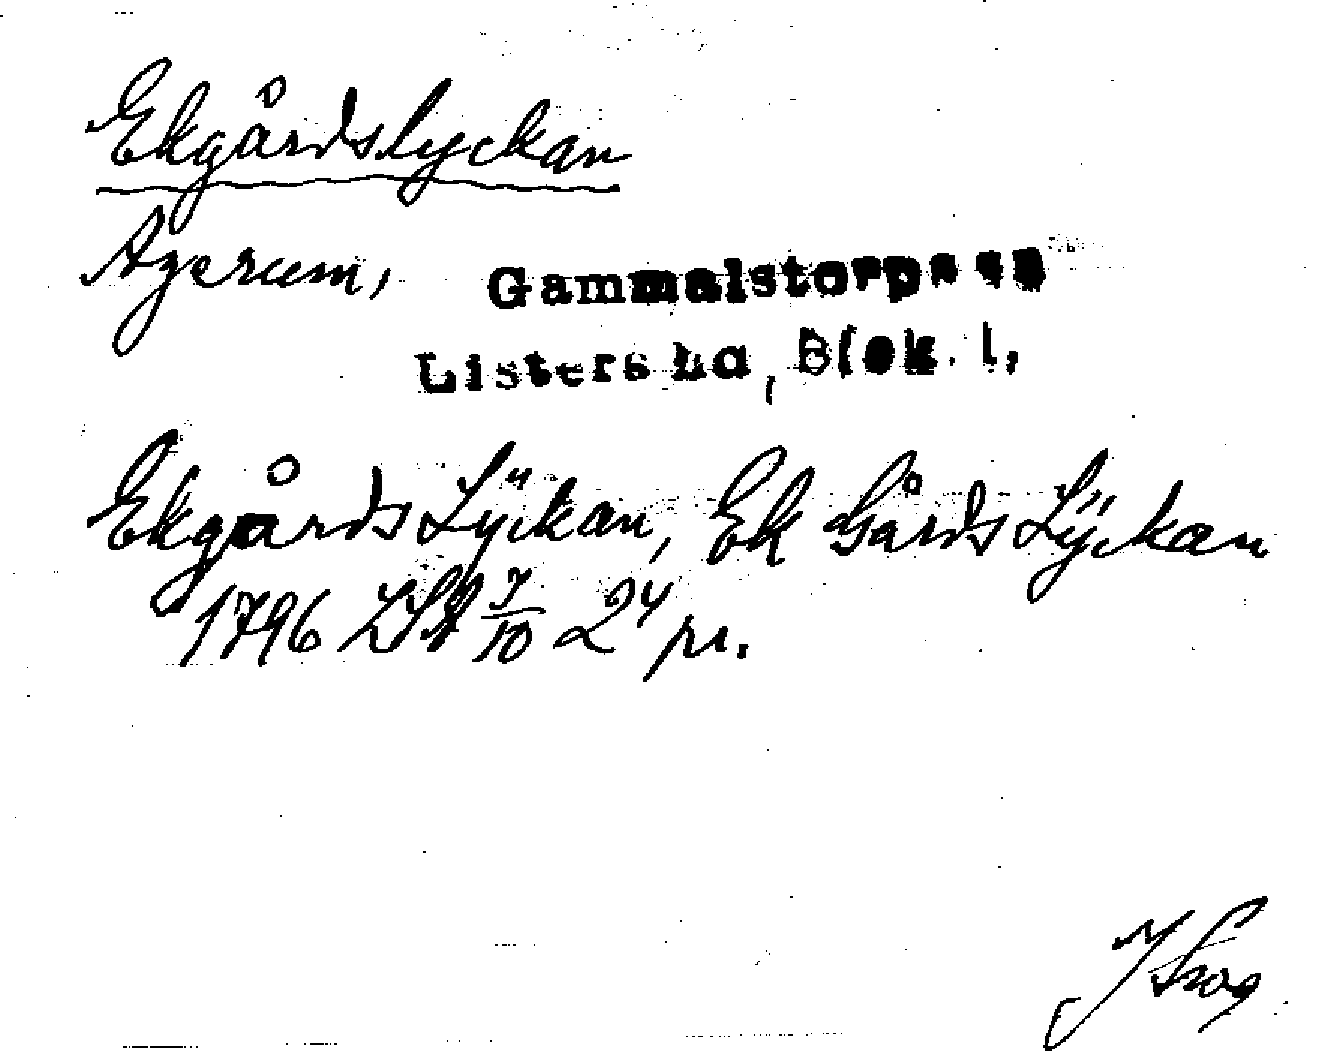 Ekgårdslyckan
Agerum,
Gammalstorps sn
Listers hd, Blek. l.
Ekgårds Lÿckan, Ek Gårds Lÿckan
1796 LSA 7/10 24 pr.